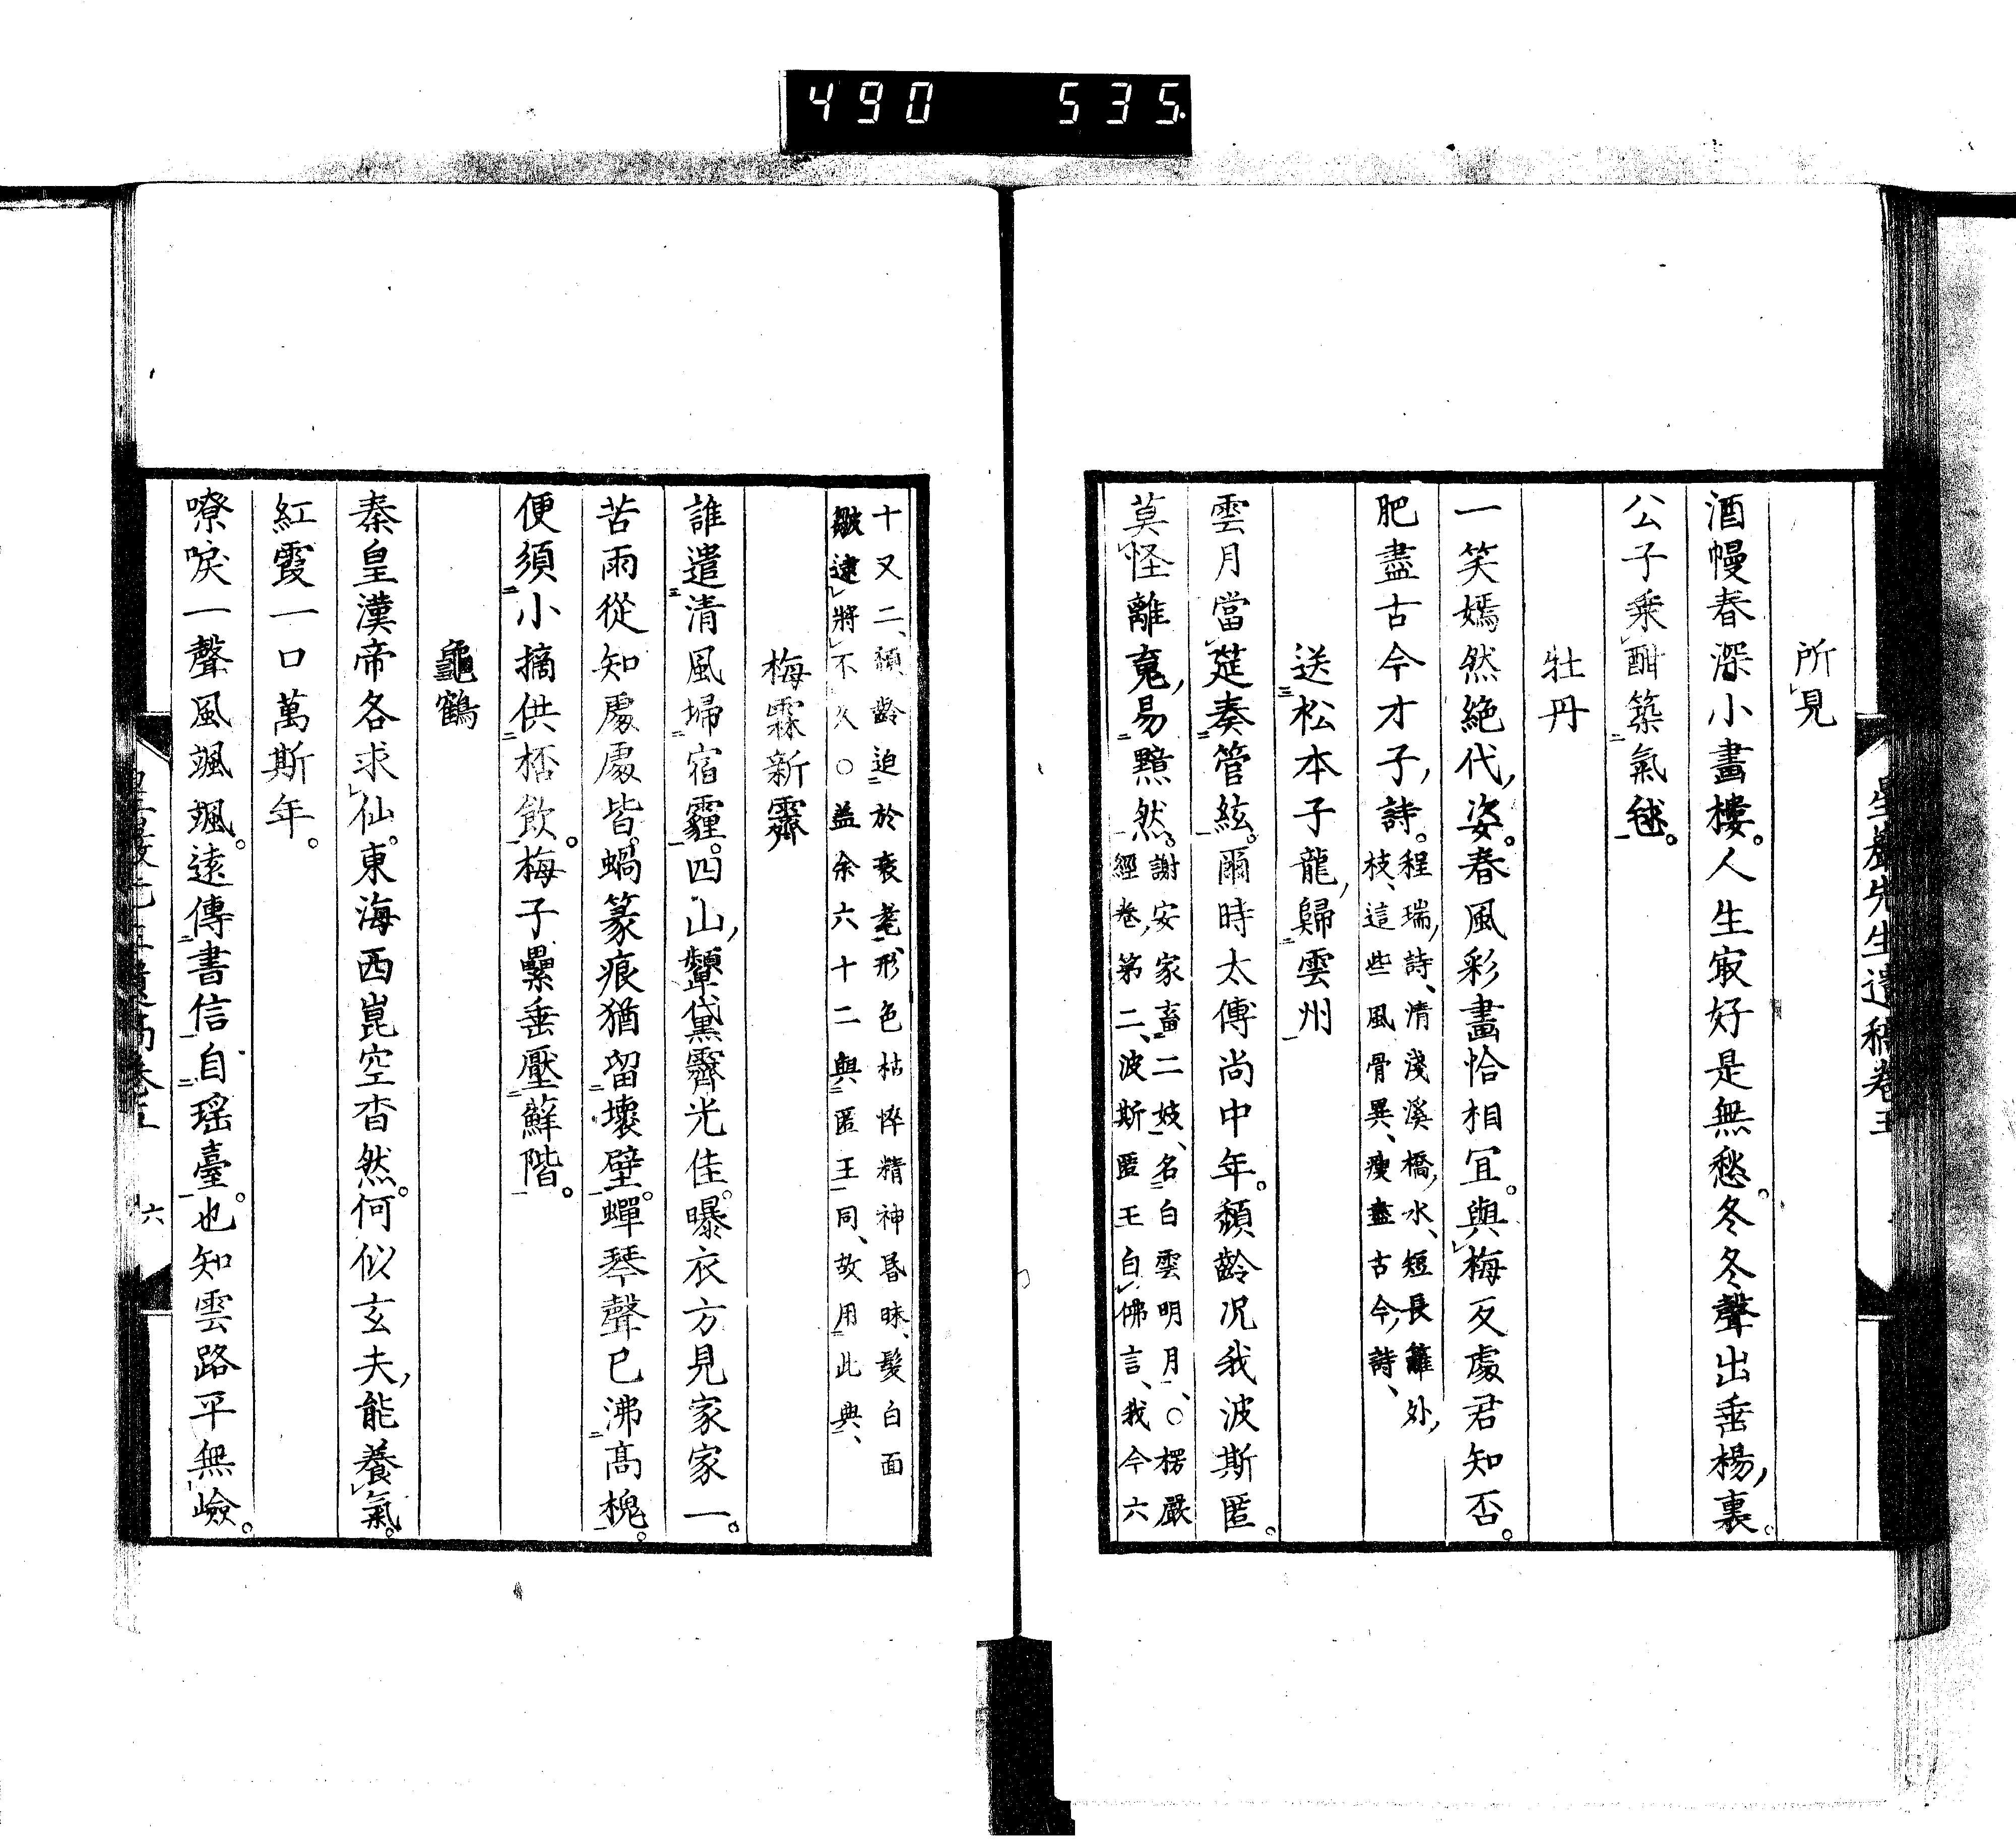 490 535
所見
酒幔春深小畫樓。人生㝡好是無愁。冬冬聲出垂楊裏。
公子乘酣築氣毬。
牡丹
一笑嫣然絕代姿。春風彩畫恰相宜。與梅反處君知否。
肥盡古今才子詩。程瑞詩、清淺溪橋水、短長籬外
枝、這些風骨異、瘦盡古今詩、
送松本子龍歸雲州
雲月當莚奏管絃。爾時太傅尚中年。頹齡況我波斯匿。
莫怪離寬易黯然。謝安家畜二妓、名白雲明月、○楞嚴
經卷第二、波斯匿王白佛言、我今六
十又二、頹齡迫於衰耄、形色枯悴精神昏昧、髮白面
皺逮將不久○益余六十二與匿王同、故用此典、
梅霖新霽
誰遣清風埽宿霾。四山顰黛霽光佳。曝衣方見家家一。
苦雨從知處處皆。蝸篆痕猶留壞壁。蟬琴聲已沸高槐。
便須小摘供桮飲。梅子纍垂壓蘚階。
龜鶴
秦皇漢帝各求仙。東海西崑空杳然。何似玄夫能養氣。
紅霞一口萬斯年。
嘹唳一聲風颯颯。遠傳書信自瑤臺。也知雲路平無嶮。
六